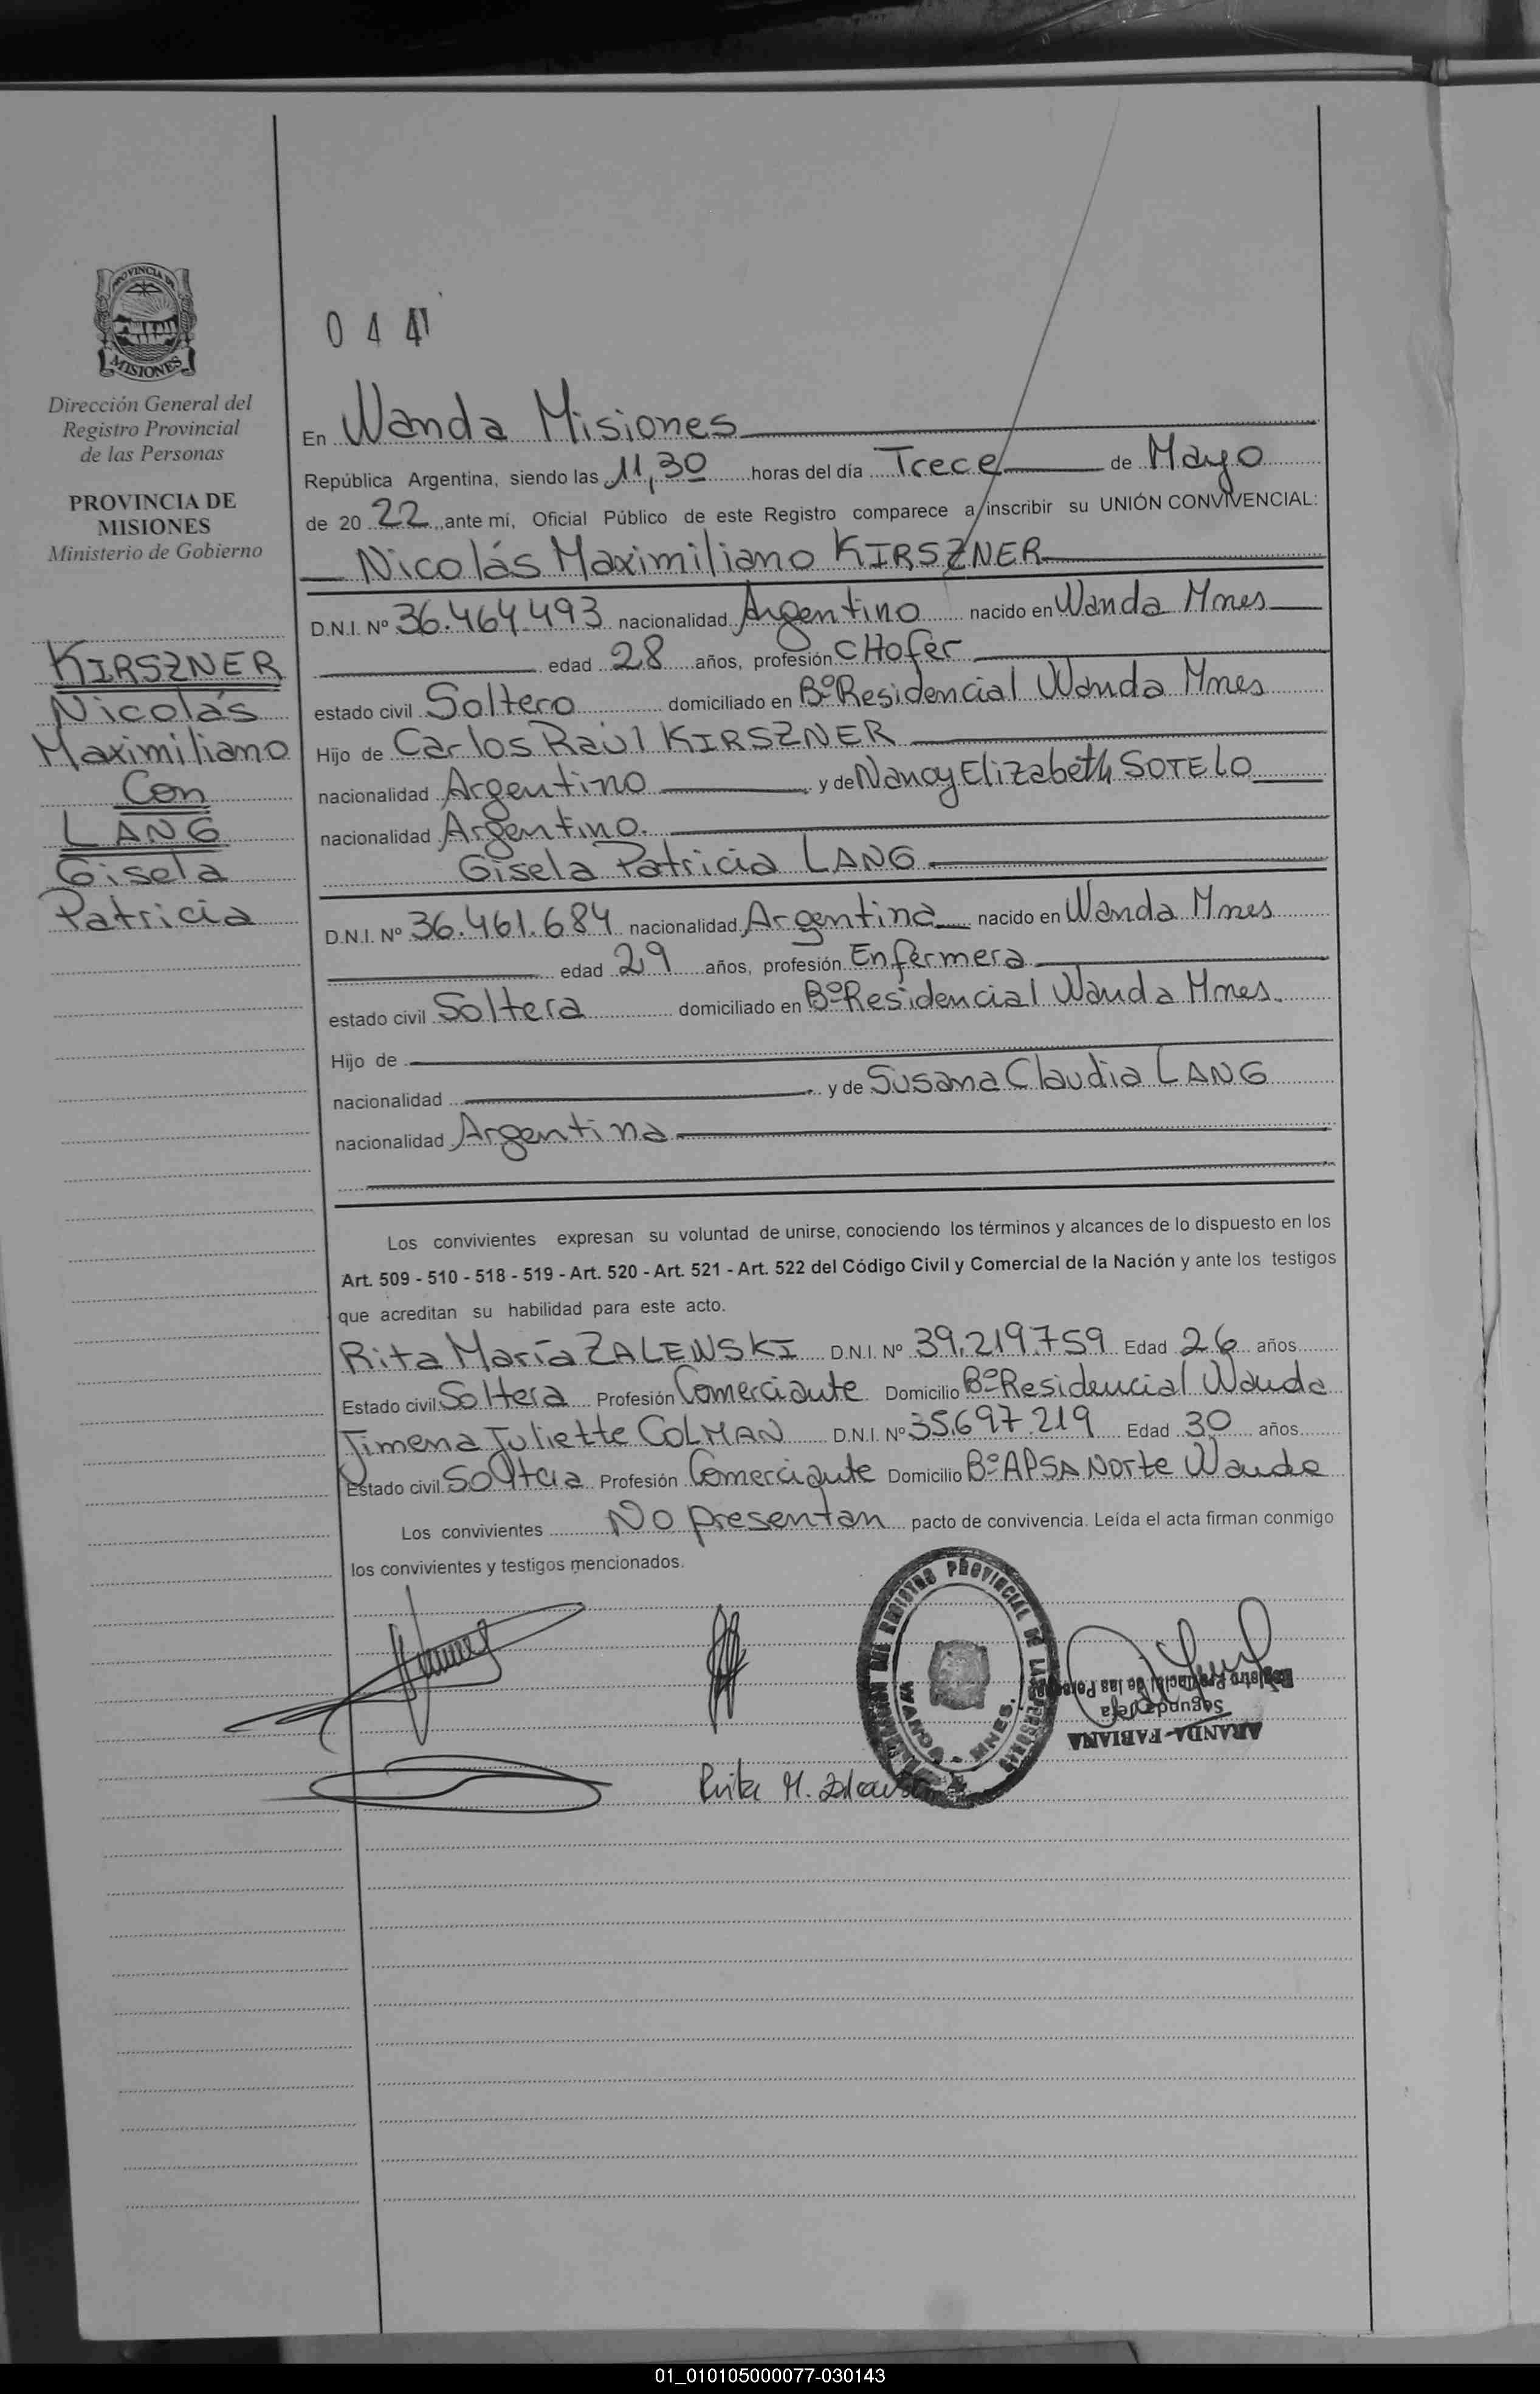 PROVINCIA DE
MISIONES
Dirección General del
Registro Provincial
de las Personas
PROVINCIA DE
MISIONES
Ministerio de Gobierno
KIRSZNER
Nicolás
Maximiliano
Con
LANG
Gisela
Patricia
0 4 4
En Wanda Misiones
República Argentina, siendo las 11,30 horas del día Trece de Mayo
de 20 22 ante mí, Oficial Público de este Registro comparece a inscribir su UNIÓN CONVIVENCIAL:
Nicolás Maximiliano KIRSZNER
D.N.I. Nº 36.464.493 nacionalidad Argentino nacido en Wanda Mnes
edad 28 años, profesión CHofer
estado civil Soltero domiciliado en Bº Residencial Wanda Mnes
Hijo de Carlos Raúl KIRSZNER
nacionalidad Argentino y de Nancy Elizabeth SOTELO
nacionalidad Argentino.
Gisela Patricia LANG
D.N.I. Nº 36.461.684 nacionalidad Argentina nacido en Wanda Mnes
edad 29 años, profesión Enfermera
estado civil Soltera domiciliado en Bº Residencial Wanda Mnes.
Hijo de
nacionalidad y de Susana Claudia LANG
nacionalidad Argentina
Los convivientes expresan su voluntad de unirse, conociendo los términos y alcances de lo dispuesto en los
Art. 509 - 510 - 518 - 519 - Art. 520 - Art. 521 - Art. 522 del Código Civil y Comercial de la Nación y ante los testigos
que acreditan su habilidad para este acto.
Rita María ZALEWSKI D.N.I. Nº 39.219.759 Edad 26 años
Estado civil Soltera Profesión Comerciante Domicilio Bº Residencial Wanda
Jimena Juliette COLMAN D.N.I. Nº 35.697.219 Edad 30 años
Estado civil Soltera Profesión Comerciante Domicilio Bº APSA Norte Wanda
Los convivientes No presentan pacto de convivencia. Leída el acta firman conmigo
los convivientes y testigos mencionados.
REGISTRO PROVINCIAL DE LAS PERSONAS
WANDA - MNES.
ARANDA FABIANA
Segunda Jefa
Registro Provincial de las Personas
Rita M.
01_010105000077-030143